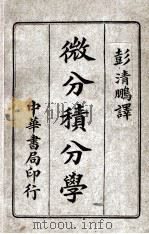 彭清鵬譯
微分積分學
中華書局印行
www.mtoou.info